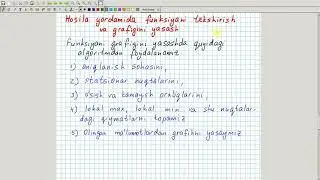 Hosila yordamida funksiyani tekshirish
va grafigini yasash
Funksiyani grafigini yasashda quyidagi
algoritmdan foydalanamiz
1) aniqlanish sohasini,
2) statsionar nuqtalarini,
3) o'sish va kamayish oraliqlarini,
4) lokal max, lokal min va shu nuqtala-
rdagi qiymatlarni topamiz
5) Olingan ma'lumotlardan grafikni yasaymiz